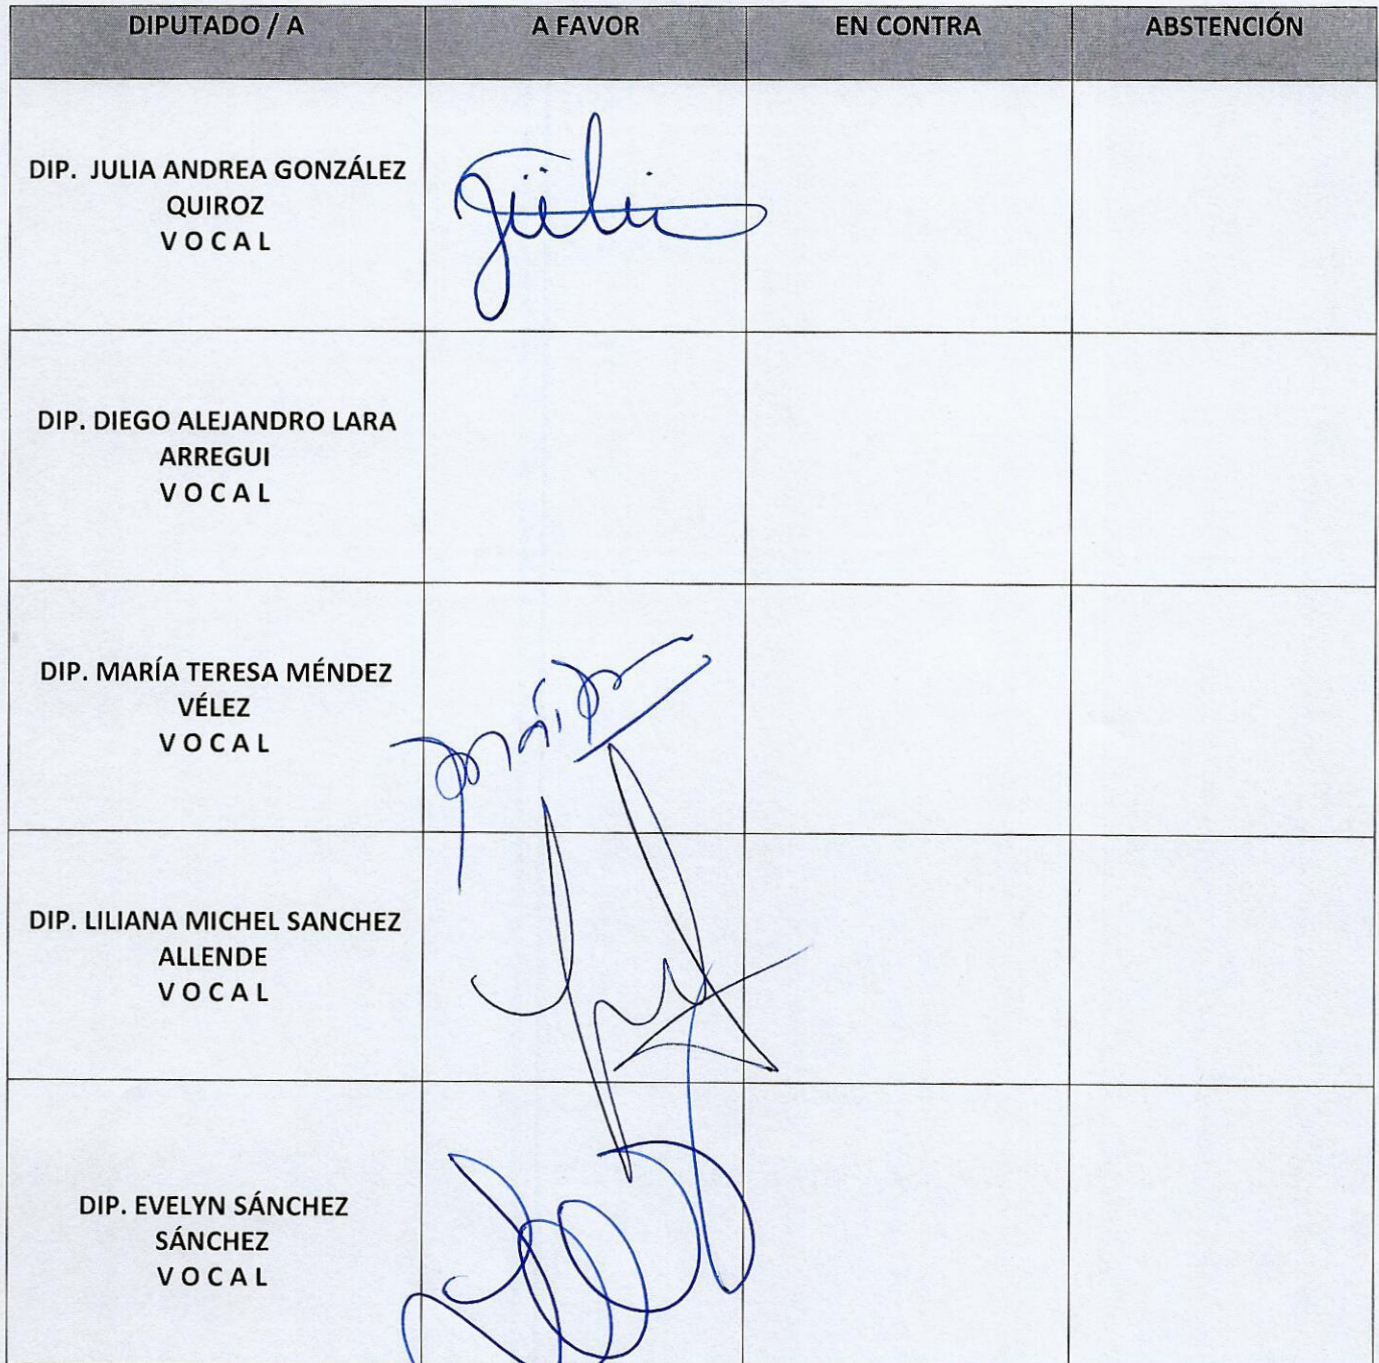 DIPUTADO / A A FAVOR EN CONTRA ABSTENCIÓN
DIP. JULIA ANDREA GONZÁLEZ
QUIROZ
V O C A L
DIP. DIEGO ALEJANDRO LARA
ARREGUI
V O C A L
DIP. MARÍA TERESA MÉNDEZ
VÉLEZ
V O C A L
DIP. LILIANA MICHEL SANCHEZ
ALLENDE
V O C A L
DIP. EVELYN SÁNCHEZ
SÁNCHEZ
V O C A L